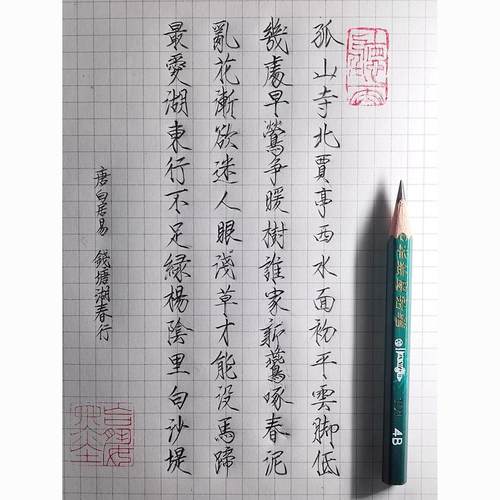 孤山寺北賈亭西水面初平雲腳低
幾處早鶯爭暖樹誰家新鶯啄春泥
亂花漸欲迷人眼淺草才能沒馬蹄
最愛湖東行不足綠楊陰里白沙堤
唐白居易 錢塘湖春行
4B